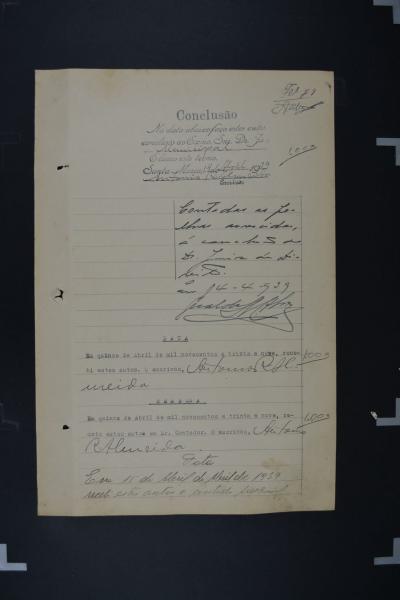 Conclusão
Na data abaixo faço estes autos
conclusos ao Exmo. Snr. Dr. Ju
Municipal
E lavro este termo.
de Abril de 1939
Antonio R. Almeida
Escrivão
1000
Contadas as fo
lhas acrescidas,
á conclusão do
Dr. Juiz de Di
reito.
Em 14-4-939
DATA
Em quinze de Abril de mil novecentos e trinta e nove, rece
bi estes autos. O escrivão, Antonio R. Al
meida
1000
REMESSA
Em quinze de Abril de mil novecentos e trinta e nove, re-
meto estes autos ao Sr. Contador. O escrivão, Antonio
R. Almeida.
1000
Data
Em 15 de Abril de 1939
recebi estes autos